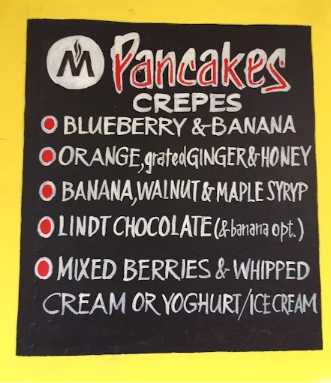 M Pancakes
CREPES
BLUEBERRY & BANANA
ORANGE, grated GINGER & HONEY
BANANA, WALNUT & MAPLE SYRYP
LINDT CHOCOLATE (& banana opt.)
MIXED BERRIES & WHIPPED
CREAM OR YOGHURT/ICE CREAM